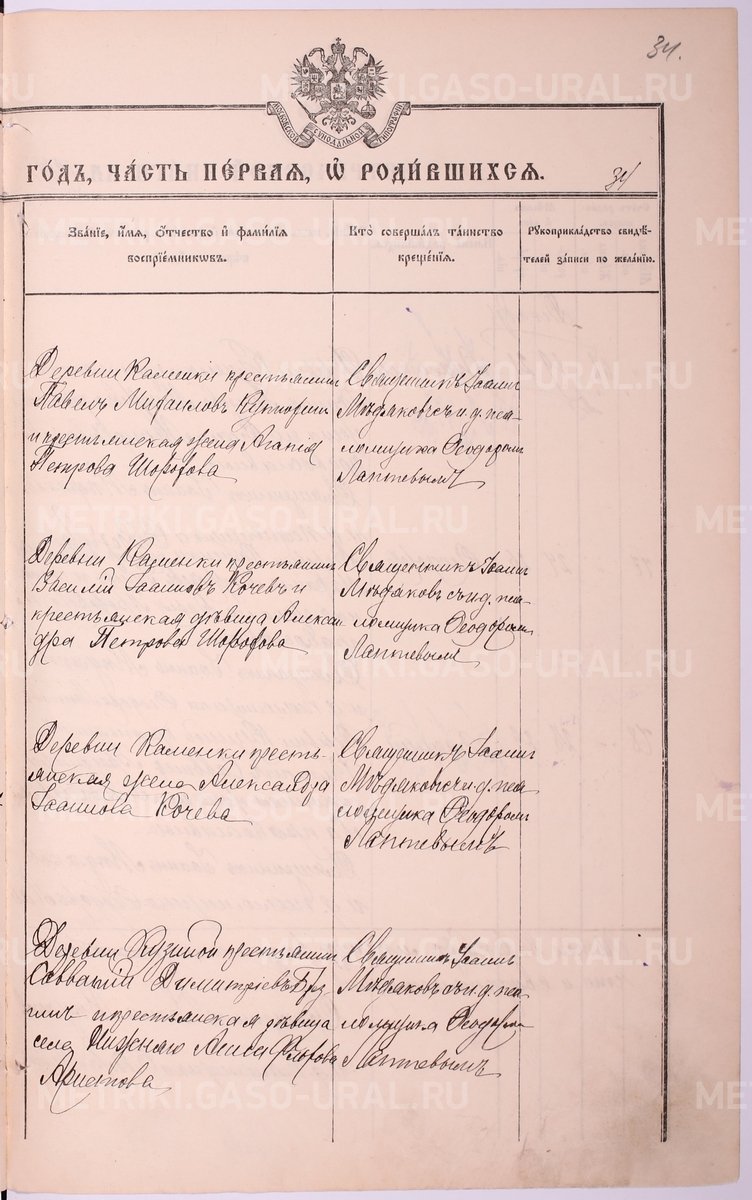 34.
МОСКОВСКОЙ СѴНОДАЛЬНОЙ ТИПОГРАФІИ
ГОДЪ, ЧАСТЬ ПЕРВАЯ, Ѿ РОДИВШИХСЯ.
34
Званіе, имя, отчество и фамилія
воспріемниковъ.
Кто совершалъ таинство
крещенія.
Рукоприкладство свидѣ-
телей записи по желанію.
Деревни Каменки крестьянин
Павелъ Михаиловъ
и крестьянская жена Агапія
Петрова Шорохова
Священникъ Іоанн
Мѣдяковъ с и. д. пса-
ломщика Ѳеодоромъ
Лаптевымъ
Деревни Каменки крестьянинъ
Василій Іоанновъ Кочевъ и
крестьянская дѣвица Алексан
дра Петрова Шорохова
Священникъ Іоанн
Мѣдяковъ съ и. д. пса-
ломщика Ѳеодоромъ
Лаптевымъ
Деревни Каменки кресть-
янская жена Александра
Іоаннова Кочева
Священникъ Іоанн
Мѣдяковъ с и. д. пса-
ломщика Ѳеодоромъ
Лаптевымъ
Деревни Кузиной крестьянин
Савватій Димитріевъ
и крестьянская дѣвица
села Нижняго Анна
Аристова
Священникъ Іоанн
Мѣдяковъ съ и. д. пса-
ломщика Ѳеодоромъ
Лаптевымъ
METRIKI.GASO-URAL.RU